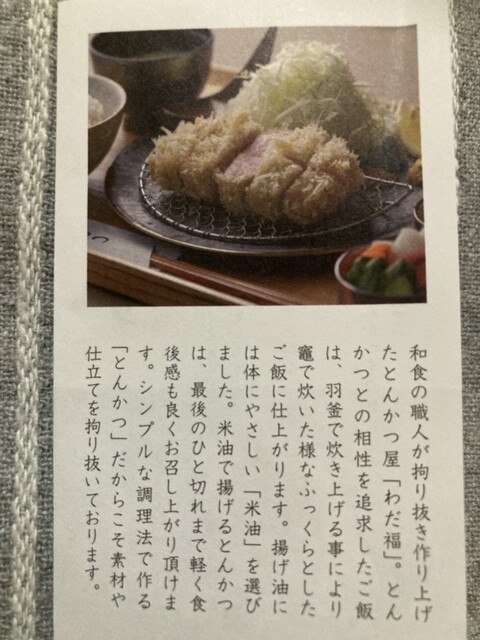 和食の職人が拘り抜き作り上げ
たとんかつ屋「わだ福」。とん
かつとの相性を追求したご飯
は、羽釜で炊き上げる事により
竈で炊いた様なふっくらとした
ご飯に仕上がります。揚げ油に
は体にやさしい「米油」を選び
ました。米油で揚げるとんかつ
は、最後のひと切れまで軽く食
後感も良くお召し上がり頂けま
す。シンプルな調理法で作る
「とんかつ」だからこそ素材や
仕立てを拘り抜いております。